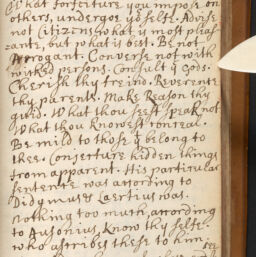 What forfeiture you impose on
others, undergoe yo selfe. Advise
not Citizens what is most pleas
zante, but what is best. Be not
Arrogant. Converse not with
wicked persons. Consult ye Gods.
Cherish thy freind. Reverente
thy parents. Make Reason thy
guid. What thou seest speak not
What thou knowest conteal.
Be mild to those yt belong to
thee. Conjecture hidden things
from apparent. His particular
sentente was attording to
Didymus & Laertius was.
nothing too much, attording
to Ausonius, Know thy selfe.
who ascribes these to him